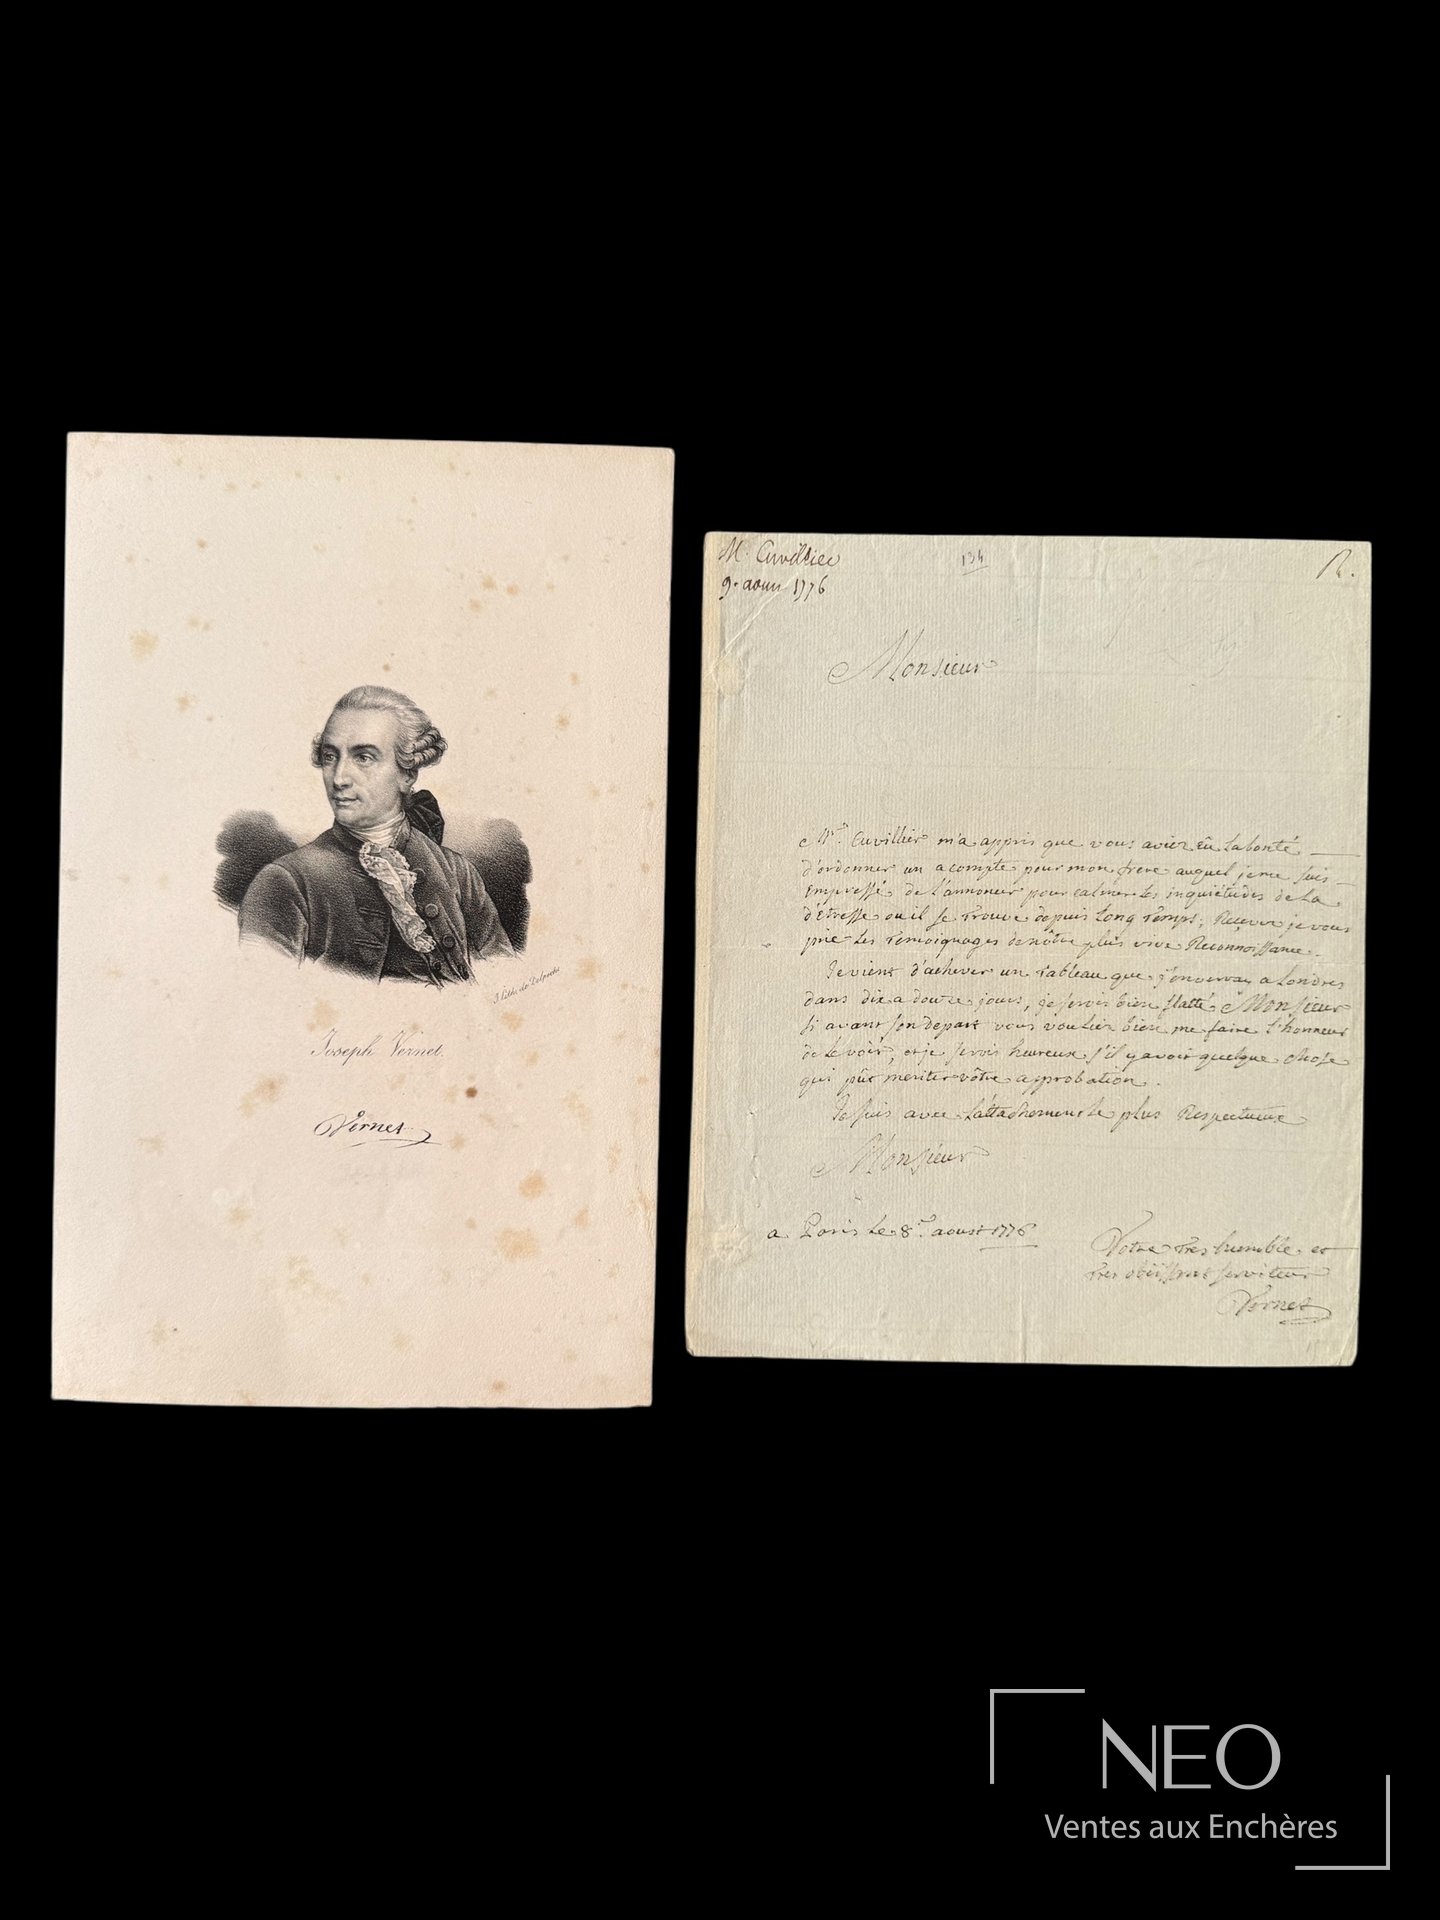 J. lith. de Delpech
Joseph Vernet.
Vernet
M. Cuvillier
9. aoust 1776
134
R.
Monsieur
Mr. Cuvillier m'a appris que vous aviez eû la bonté
d'ordonner un acompte pour mon frere auquel je me suis
Empressé de l'annoncer pour calmer les inquiétudes de La
d'Etresse ou il se trouve depuis Long Temps; Reçever je vous
prie Les Temoignages de nôtre plus vive Reconnoissance.
Je vient d'achever un Tableau que j'envervay a Londres
dans dix a douze jours, je serois bien flatté Monsieur
si avant son depart vous vouliez bien me faire l'honneur
de Le voir, et je serois heureux s'il y avoit quelque chose
qui pût meriter vôtre approbation.
Je suis avec L'attachement le plus Respectueux
Monsieur
a Paris Le 8.e aoust 1776
Votre Tres humble et
Tres obéissant serviteur
Vernet
NEO
Ventes aux Enchères